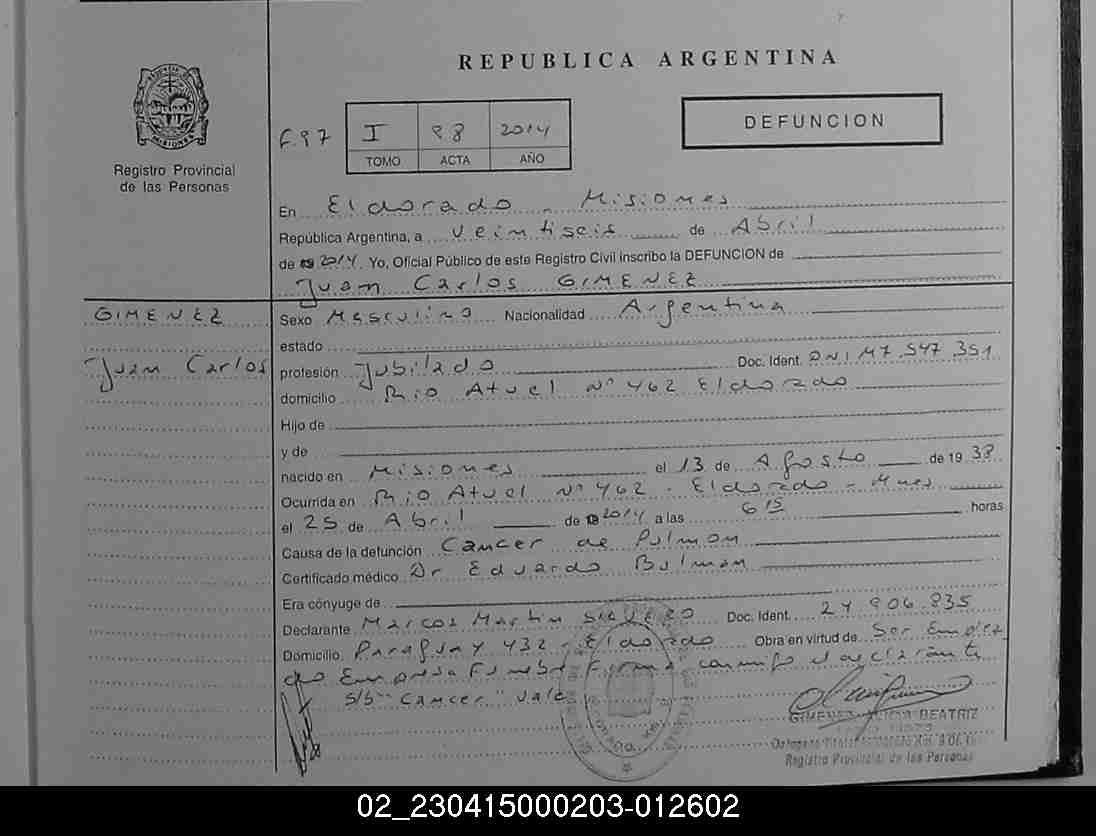 REPUBLICA ARGENTINA
MISIONES
Registro Provincial
de las Personas
F. 97
I 98 2014
TOMO ACTA AÑO
DEFUNCION
En Eldorado - Misiones
República Argentina, a Veintiseis de Abril
de 2014 Yo, Oficial Público de este Registro Civil inscribo la DEFUNCION de
Juan Carlos GIMENEZ
GIMENEZ
Juan Carlos
Sexo Masculino Nacionalidad Argentina
estado
profesión Jubilado Doc. Ident. DNI M7.547.351
domicilio Rio Atuel Nº 462 Eldorado
Hijo de
y de
nacido en Misiones el 13 de Agosto de 1938
Ocurrida en Rio Atuel Nº 462 - Eldorado - Mnes
el 25 de Abril de 2014 a las 6 15 horas
Causa de la defunción Cancer de Pulmon
Certificado médico Dr Eduardo Bulman
Era cónyuge de
Declarante Marcos Martin Doc. Ident. 24.906.835
Domicilio Paraguay 432 - Eldorado Obra en virtud de Ser Emplea
do Empresa Funebre Firma conmigo el declarante
S/b "Cancer" Vale
GIMENEZ BEATRIZ
Registro Provincial de las Personas
02_230415000203-012602